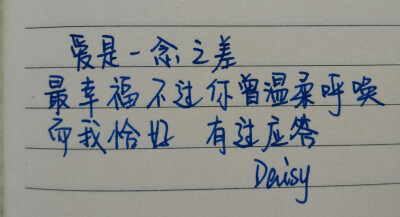 爱是一念之差
最幸福不过你曾温柔呼唤
而我恰好 有过应答
Daisy